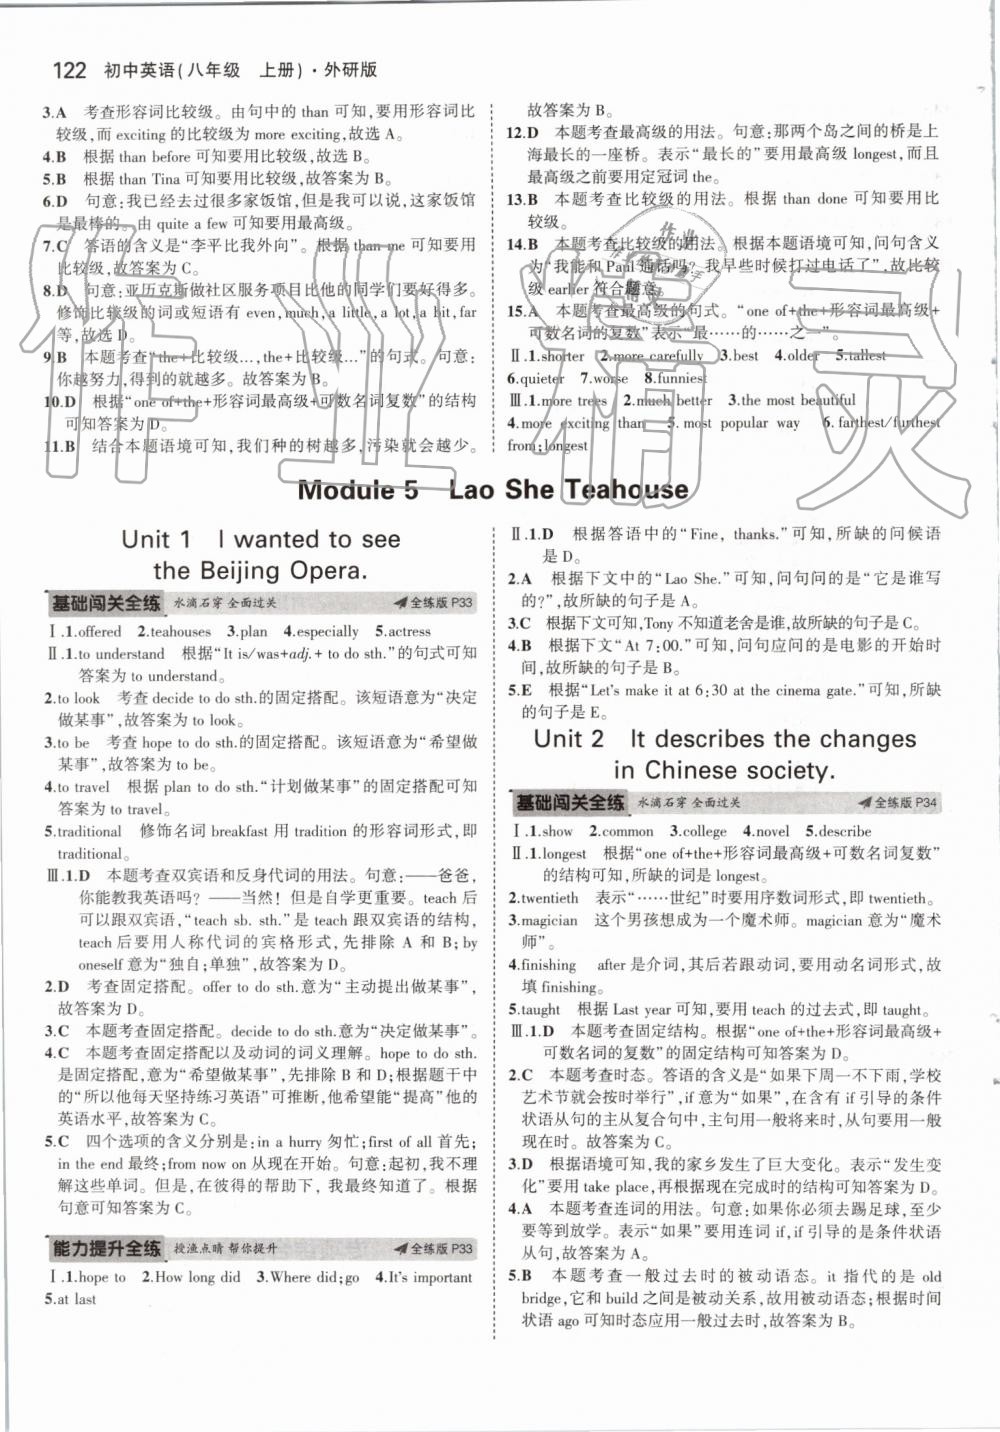 122 初中英语(八年级 上册)·外研版
3.A 考查形容词比较级。由句中的 than 可知,要用形容词比
较级,而 exciting 的比较级为 more exciting,故选 A。
4.B 根据 than before 可知要用比较级,故选 B。
5.B 根据 than Tina 可知要用比较级,故答案为 B。
6.D 句意:我已经去过很多家饭馆,但是我可以说,这家饭馆
是最棒的。由 quite a few 可知要用最高级。
7.C 答语的含义是“李平比我外向”。根据 than me 可知要用
比较级,故答案为 C。
8.D 句意:亚历克斯做社区服务项目比他的同学们要好得多。
修饰比较级的词或短语有 even,much,a little,a lot,a bit,far
等,故选 D。
9.B 本题考查“the+比较级…,the+比较级…”的句式。句意:
你越努力,得到的就越多。故答案为 B。
10.D 根据“one of+the+形容词最高级+可数名词复数”的结构
可知答案为 D。
11.B 结合本题语境可知,我们种的树越多,污染就会越少。
故答案为 B。
12.D 本题考查最高级的用法。句意:那两个岛之间的桥是上
海最长的一座桥。表示“最长的”要用最高级 longest,而且
最高级之前要用定冠词 the。
13.B 本题考查比较级的用法。根据 than done 可知要用比
较级。
14.B 本题考查比较级的用法。根据本题语境可知,问句含义
为“我能和 Paul 通话吗? 我早些时候打过电话了”,故比较
级 earlier 符合题意。
15.A 本题考查最高级的句式。“one of+the+形容词最高级+
可数名词的复数”表示“最……的……之一”。
Ⅱ.1.shorter 2.more carefully 3.best 4.older 5.tallest
6.quieter 7.worse 8.funniest
Ⅲ.1.more trees 2.much better 3.the most beautiful
4.more exciting than 5.most popular way 6.farthest/furthest
from;longest
Module 5 Lao She Teahouse
Unit 1 I wanted to see
the Beijing Opera.
基础闯关全练 水滴石穿 全面过关 全练版 P33
Ⅰ.1.offered 2.teahouses 3.plan 4.especially 5.actress
Ⅱ.1.to understand 根据“It is/was+adj.+ to do sth.”的句式可知
答案为 to understand。
2.to look 考查 decide to do sth.的固定搭配。该短语意为“决定
做某事”,故答案为 to look。
3.to be 考查 hope to do sth.的固定搭配。该短语意为“希望做
某事”,故答案为 to be。
4.to travel 根据 plan to do sth.“计划做某事”的固定搭配可知
答案为 to travel。
5.traditional 修饰名词 breakfast 用 tradition 的形容词形式,即
traditional。
Ⅲ.1.D 本题考查双宾语和反身代词的用法。句意:——爸爸,
你能教我英语吗? ——当然! 但是自学更重要。teach 后
可以跟双宾语,“teach sb. sth.”是 teach 跟双宾语的结构,
teach 后要用人称代词的宾格形式,先排除 A 和 B;by
oneself 意为“独自;单独”,故答案为 D。
2.D 考查固定搭配。offer to do sth.意为“主动提出做某事”,
故答案为 D。
3.C 本题考查固定搭配。decide to do sth.意为“决定做某事”。
4.C 本题考查固定搭配以及动词的词义理解。hope to do sth.
是固定搭配,意为“希望做某事”,先排除 B 和 D;根据题干中
的“所以他每天坚持练习英语”可推断,他希望能“提高”他的
英语水平,故答案为 C。
5.C 四个选项的含义分别是:in a hurry 匆忙;first of all 首先;
in the end 最终;from now on 从现在开始。句意:起初,我不理
解这些单词。但是,在彼得的帮助下, 我最终知道了。根据
句意可知答案为 C。
能力提升全练 授渔点睛 帮你提升 全练版 P33
Ⅰ.1.hope to 2.How long did 3.Where did;go 4.It's important
5.at last
Ⅱ.1.D 根据答语中的“Fine, thanks.”可知,所缺的问候语
是 D。
2.A 根据下文中的“Lao She.”可知,问句问的是“它是谁写
的?”,故所缺的句子是 A。
3.C 根据下文可知,Tony 不知道老舍是谁,故所缺的句子是 C。
4.B 根据下文“At 7:00.”可知,问句应问的是电影的开始时
间,故所缺的句子是 B。
5.E 根据“Let's make it at 6:30 at the cinema gate.”可知,所缺
的句子是 E。
Unit 2 It describes the changes
in Chinese society.
基础闯关全练 水滴石穿 全面过关 全练版 P34
Ⅰ.1.show 2.common 3.college 4.novel 5.describe
Ⅱ.1.longest 根据“one of+the+形容词最高级+可数名词复数”
的结构可知,所缺的词是 longest。
2.twentieth 表示“……世纪”时要用序数词形式,即 twentieth。
3.magician 这个男孩想成为一个魔术师。magician 意为“魔术
师”。
4.finishing after 是介词,其后若跟动词,要用动名词形式,故
填 finishing。
5.taught 根据 Last year 可知,要用 teach 的过去式,即 taught。
Ⅲ.1.D 本题考查固定结构。根据“one of+the+形容词最高级+
可数名词的复数”的固定结构可知答案为 D。
2.C 本题考查时态。答语的含义是“如果下周一不下雨,学校
艺术节就会按时举行”,if 意为“如果”,在含有 if 引导的条件
状语从句的主从复合句中,主句用一般将来时,从句要用一般
现在时。故答案为 C。
3.D 根据语境可知,我的家乡发生了巨大变化。表示“发生变
化”要用 take place,再根据现在完成时的结构可知答案为 D。
4.A 本题考查连词的用法。句意:如果你必须去踢足球,至少
要等到放学。表示“如果”要用连词 if,if 引导的是条件状语
从句,故答案为 A。
5.B 本题考查一般过去时的被动语态。it 指代的是 old
bridge,它和 build 之间是被动关系,故用被动语态;根据时间
状语 ago 可知时态应用一般过去时,故答案为 B。
作业精灵